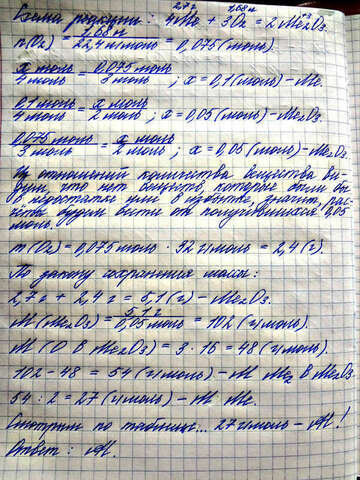 2,7г 1,68л
Схема реакции: 4Me + 3O₂ = 2Me₂⁺³O₃.
n(O₂) = 1,68л / 22,4 л/моль = 0,075 (моль).
x моль / 4 моль = 0,075 моль / 3 моль ; x = 0,1 (моль) - Me.
0,1 моль / 4 моль = x моль / 2 моль ; x = 0,05 (моль) - Me₂O₃.
0,075 моль / 3 моль = x моль / 2 моль ; x = 0,05 (моль) - Me₂O₃.
Из отношений количества вещества ви-
дим, что нет веществ, которые были бы
в недостатке или в избытке, значит, рас-
чёты будем вести от получившихся 0,05
моль.
m(O₂) = 0,075 моль · 32 г/моль = 2,4 (г).
По закону сохранения массы:
2,7 г + 2,4 г = 5,1 (г) - Me₂O₃.
M(Me₂O₃) = 5,1 г / 0,05 моль = 102 (г/моль).
M (O в Me₂O₃) = 3 · 16 = 48 (г/моль).
102 - 48 = 54 (г/моль) - M Me₂ в Me₂O₃.
54 : 2 = 27 (г/моль) - M Me.
Смотрим по таблице... 27 г/моль - Al!
Ответ: Al.